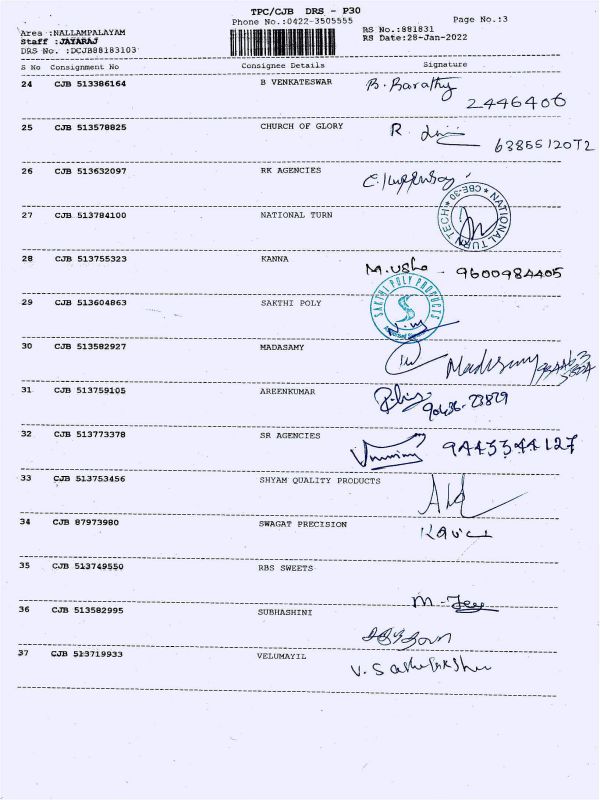 TPC/CJB DRS - P30
Phone No.:0422-3505555
Page No.:3
Area :NALLAMPALAYAM
Staff :JAYARAJ
DRS No. :DCJB88183103
RS No.:881831
RS Date:28-Jan-2022
S No Consignment No Consignee Details Signature
24 CJB 513386164 B VENKATESWAR B. Barathy
2446406
25 CJB 513578825 CHURCH OF GLORY R.
26 CJB 513632097 RK AGENCIES
27 CJB 513784100 NATIONAL TURN
NATIONAL TURN TECH * CBE-30 *
28 CJB 513755323 KANNA M. Usha - 9600984405
29 CJB 513604863 SAKTHI POLY
SAKTHI POLY PRODUCTS
30 CJB 513582927 MADASAMY Madasamy
31 CJB 513759105 AREENKUMAR
90436-73879
32 CJB 513773378 SR AGENCIES 9445344127
33 CJB 513753456 SHYAM QUALITY PRODUCTS
34 CJB 87973980 SWAGAT PRECISION
35 CJB 513749550 RBS SWEETS
36 CJB 513582995 SUBHASHINI
37 CJB 513719933 VELUMAYIL